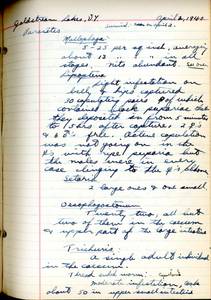 Goldstream Lakes, V.I. April 2, 1940
Parasites
Mallophaga:
5 - 25 per sq inch, averaging
about 13 " " " in all
stages. Nits abundant.
Lipoptena
Light infestation on
belly & hips captured
50 copulating pairs
contained black puparia that
they deposited in from 5 minutes
to 15 hrs after capture: 2 ♂'s
& 2 ♀'s free. Active copulation
was not going on in the
♀'s with ripe puparia but
the males were in every
case clinging to the ♀'s abdomen
Setaria
2 large ones & one small.
Oesophagostomum
Twenty two, all but
two of them in the caecum
& upper part of the large intestine
Trichuris
A single adult individual
in the caecum.
Thread adult worm:
moderate infestation,
about 50 in upper small intestine